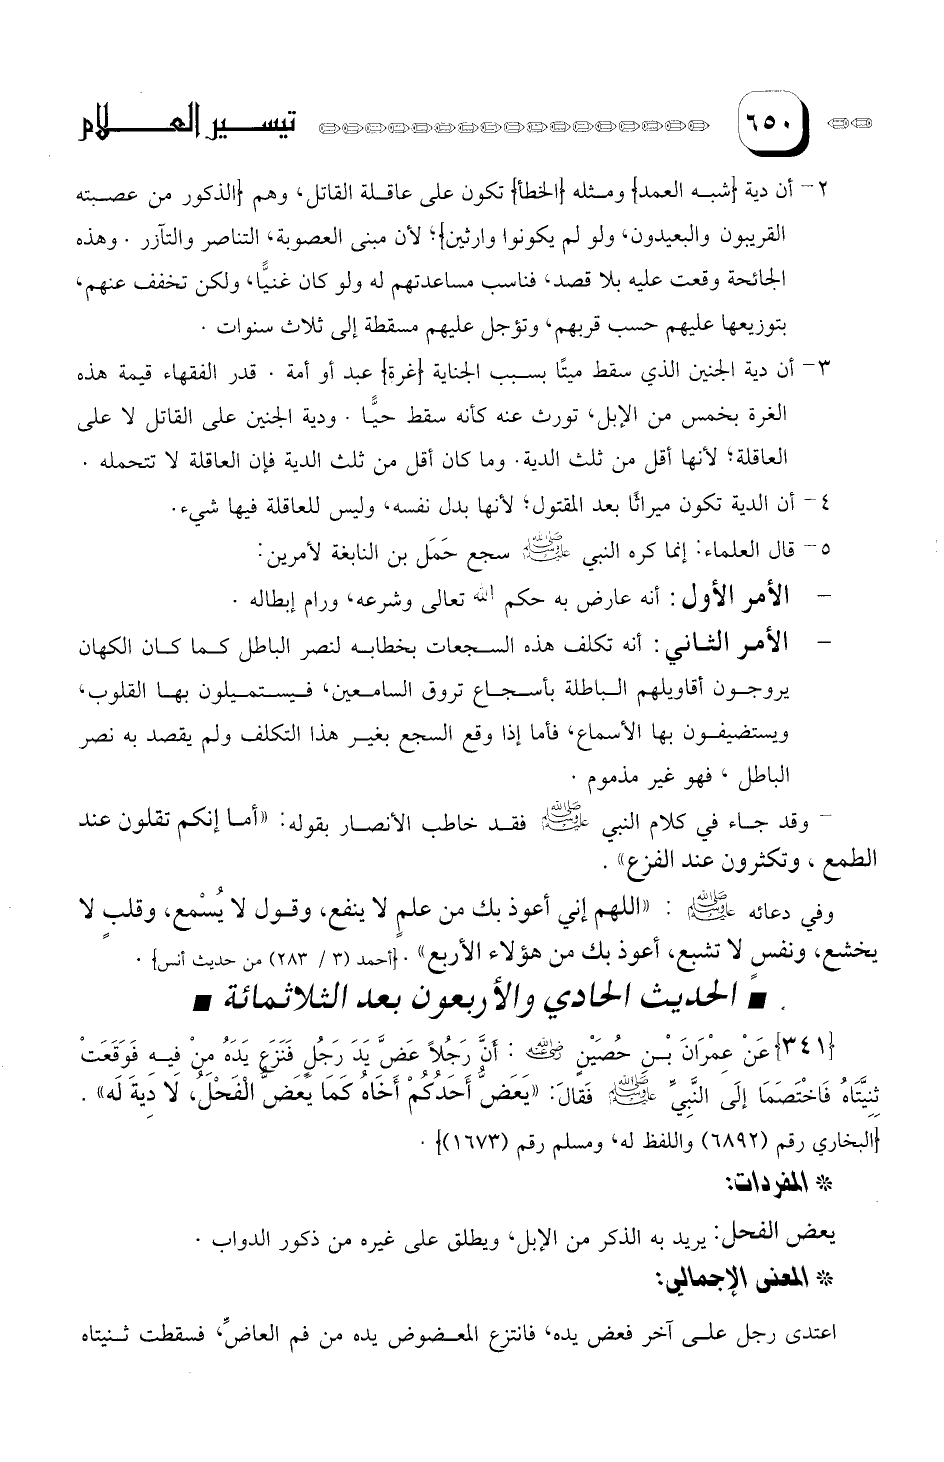 ٦٥٠ تيسير العلام
٢- أن دية {شبه العمد} ومثله {الخطأ} تكون على عاقلة القاتل، وهم {الذكور من عصبته
القريبون والبعيدون، ولو لم يكونوا وارثين}؛ لأن مبنى العصوبة، التناصر والتآزر . وهذه
الجائحة وقعت عليه بلا قصد، فناسب مساعدتهم له ولو كان غنيًّا، ولكن تخفف عنهم،
بتوزيعها عليهم حسب قربهم، وتؤجل عليهم مسقطة إلى ثلاث سنوات .
٣- أن دية الجنين الذي سقط ميتًا بسبب الجناية {غرة} عبد أو أمة . قدر الفقهاء قيمة هذه
الغرة بخمس من الإبل، تورث عنه كأنه سقط حيًّا . ودية الجنين على القاتل لا على
العاقلة؛ لأنها أقل من ثلث الدية. وما كان أقل من ثلث الدية فإن العاقلة لا تتحمله .
٤- أن الدية تكون ميراثًا بعد المقتول؛ لأنها بدل نفسه، وليس للعاقلة فيها شيء.
٥- قال العلماء: إنما كره النبي ﷺ سجع حَمَل بن النابغة لأمرين:
- الأمر الأول : أنه عارض به حكم الله تعالى وشرعه، ورام إبطاله .
- الأمر الثاني : أنه تكلف هذه السجعات بخطابه لنصر الباطل كما كان الكهان
يروجون أقاويلهم الباطلة بأسجاع تروق السامعين، فيستميلون بها القلوب،
ويستضيفون بها الأسماع، فأما إذا وقع السجع بغير هذا التكلف ولم يقصد به نصر
الباطل ، فهو غير مذموم .
- وقد جاء في كلام النبي ﷺ فقد خاطب الأنصار بقوله: «أما إنكم تقلون عند
الطمع ، وتكثرون عند الفزع» .
وفي دعائه ﷺ : «اللهم إني أعوذ بك من علمٍ لا ينفع، وقول لا يُسْمع، وقلبٍ لا
يخشع، ونفسٍ لا تشبع، أعوذ بك من هؤلاء الأربع» .{أحمد (٣ / ٢٨٣) من حديث أنس} .
. ■ الحديث الحادي والأربعون بعد الثلاثمائة ■
{٣٤١}عَنْ عِمْرَانَ بْنِ حُصَيْنٍ رضي الله عنه : أَنَّ رَجُلاً عَضَّ يَدَ رَجُلٍ فَنَزَعَ يَدَهُ مِنْ فِيهِ فَوَقَعَتْ
ثَنِيَّتَاهُ فَاخْتَصَمَا إِلَى النَّبِيِّ ﷺ فَقَالَ: «يَعَضُّ أَحَدُكُمْ أَخَاهُ كَمَا يَعَضُّ الْفَحْلُ، لَا دِيةَ لَه» .
{البخاري رقم (٦٨٩٢) واللفظ له، ومسلم رقم (١٦٧٣)} .
* المفردات:
يعض الفحل: يريد به الذكر من الإبل، ويطلق على غيره من ذكور الدواب .
* المعنى الإجمالي:
اعتدى رجل على آخر فعض يده، فانتزع المعضوض يده من فم العاضِّ، فسقطت ثنيتاه